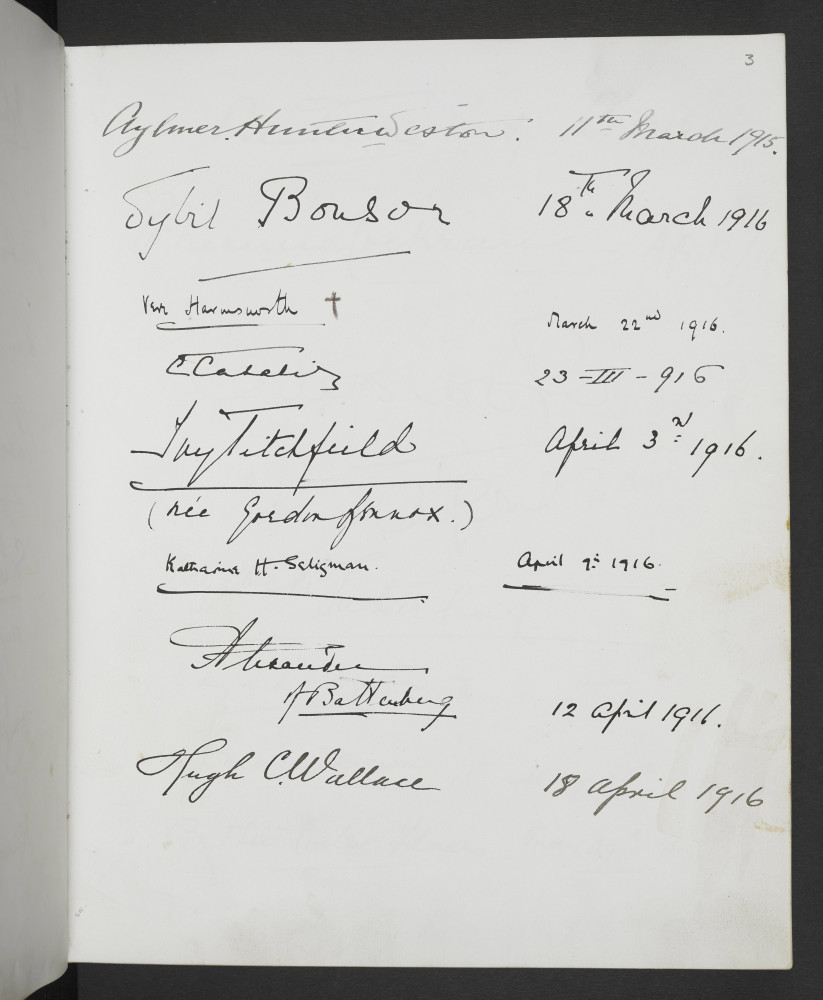 3
Aylmer Hunter-Weston. 11th March 1915.
Sybil Bonsor 18th March 1916
Vere Harmsworth † March 22nd 1916.
23-III-916
Ivy Titchfield April 3rd 1916.
(née Gordon Lennox.)
Katharine H. Seligman. April 9th 1916.
Alexander
of Battenberg 12 April 1916.
Hugh C. Wallace 18 April 1916